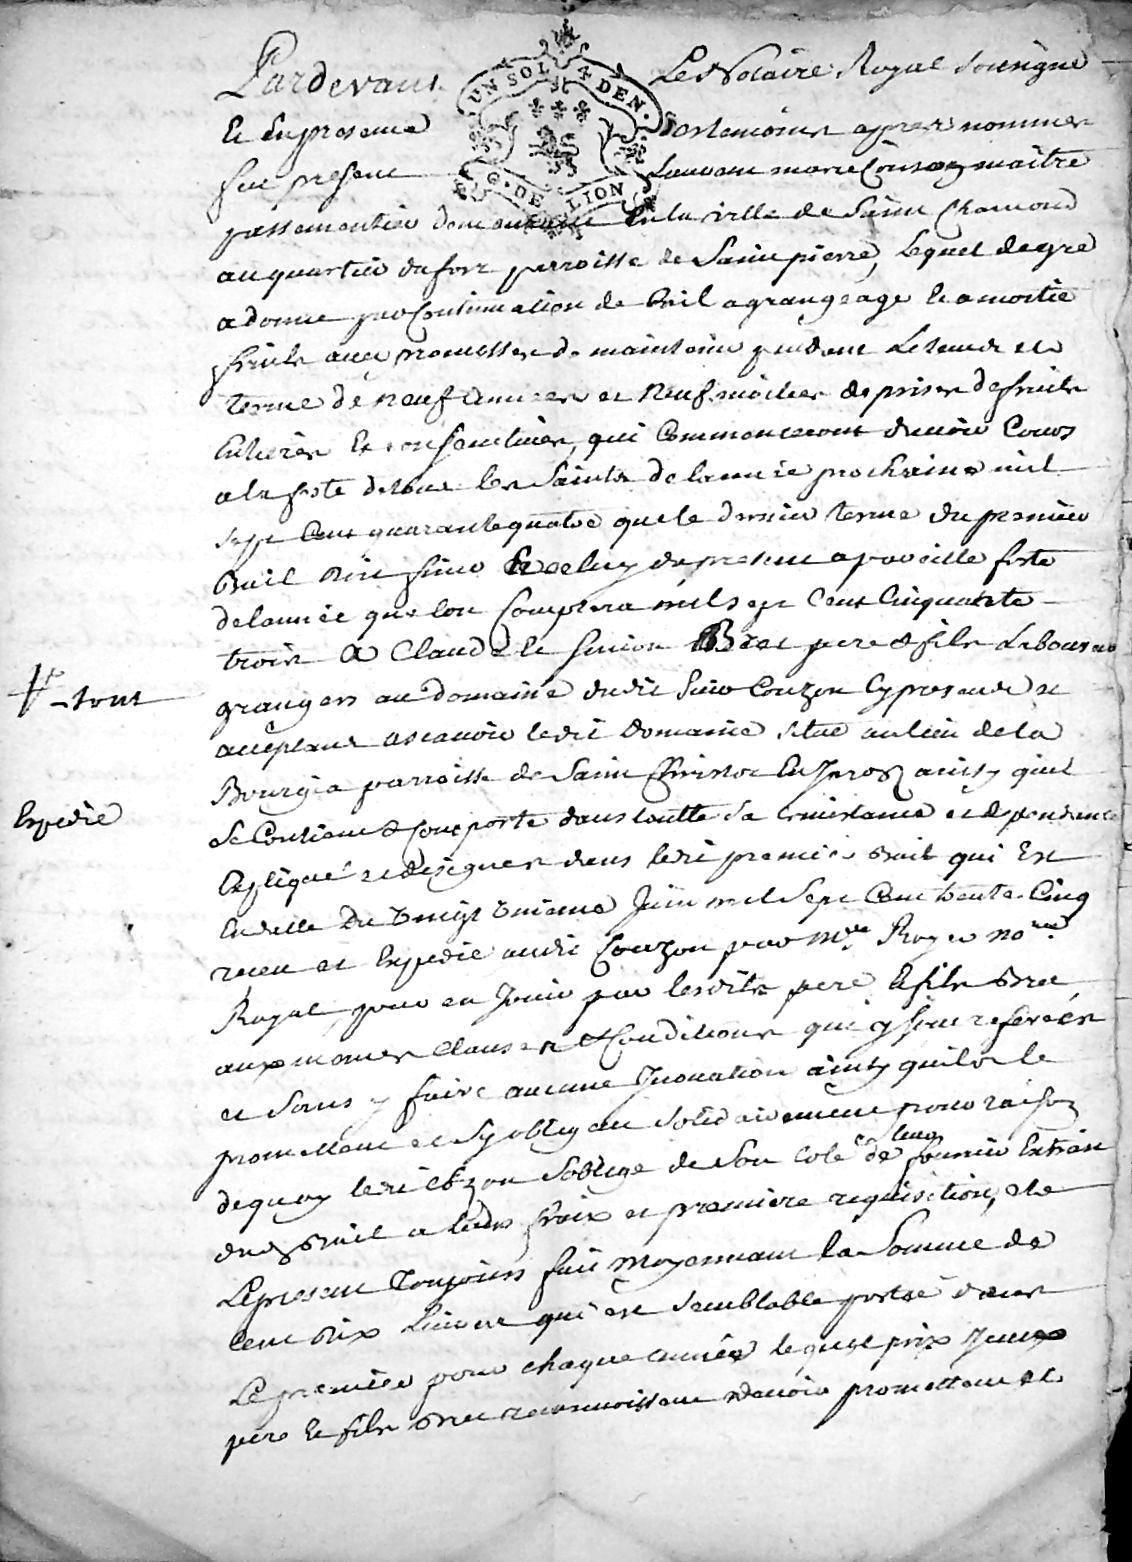 Pardevant Le Notaire Royal Sousigné
UN SOL 4 DEN.
G. DE LION
Et En presence des temoins apres nommes
fut present Laurant marie Couzon maitre
passementier demeurant En la ville de Saint Chamond
au quartier du fort parroisse de Saint pierre, lequel de gre
a donné par Continuation de Bail a grangeage et a moitié
fruits avec promesse de maintenir pendant Le tems et
terme de neuf années et neuf prises de fruits
Entieres et consecutives, qui Commenceront d'avoir Cours
a la feste de tous les Saints de l'année prochaine mil
sept Cent quarante quatre que le dernier terme du premier
Bail Doit finir Et celuy du present a pareille feste
de l'année que l'on Comptera mil sept Cent Cinquante
trois A Claude et Simon Bret pere & fils Laboureurs
grangers au domaine dudit Sieur Couzon Cy presents et
-tout
acceptant a scavoir ledit domaine situé au lieu de la
Bourgia parroisse de Saint Christot En Jarez ainsy quil
Expedié
Se Contient & Comporte dans toutte Sa Consistance et dependance
Expliqué et designés dans ledit premier Bail qui Est
En datte Du Vingt Uniéme Juin mil Sept Cent trente Cinq
receu et Expedié audit Couzon par Me Royer nore
Royal pour en Jouir par lesdits pere & fils Bret
aux mémes Clauses & Conditions qui y sont referées
et Sans y faire aucune Jnovation ainsy quils le
promettent et S'y obligent Solidairement pour raison
de quoy ledit Couzon S'oblige de Son Coté de leur fournir Extrait
dud. Bail a leurs fraix et premiere requisition, et le
Le present Toujours fait Moyennant la Somme de
Cent Dix Livres qui est Semblable portée dans
Le premier pour chaque année lequel prix
pere & fils Bret reconnoissent devoir promettent et